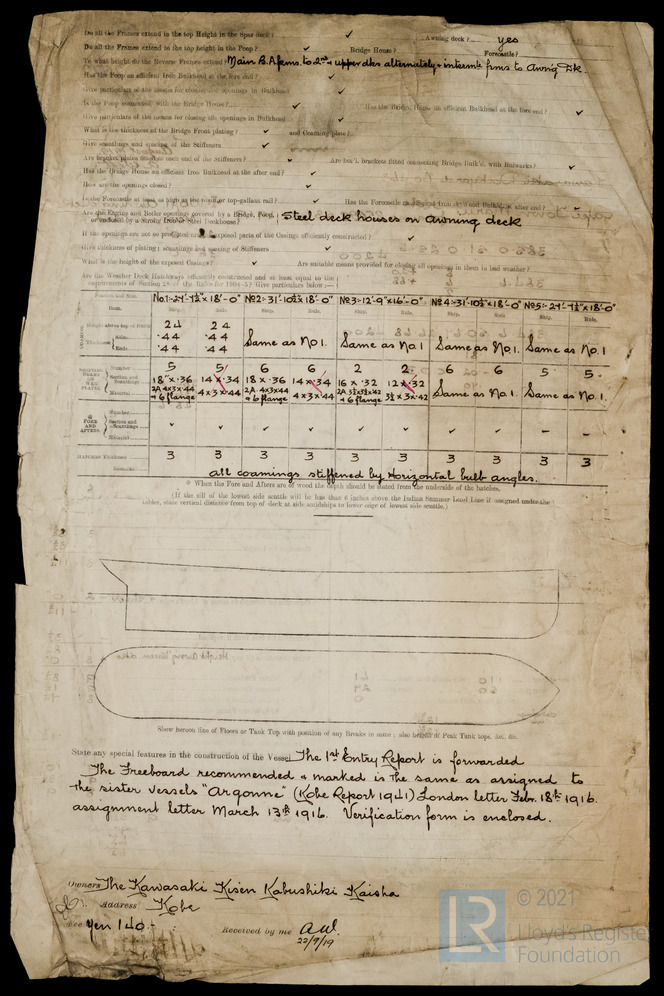 Do all the Frames extend to the top Height in the Spar deck? ✓ Awning deck? yes
Do all the Frames extend to the top height in the Poop? ✓ Bridge House? Forecastle?
To what height do the Reverse Frames extend? Main & A frms. to 2nd & upper dks alternately & intermte frms to Awng Dk.
Has the Poop an efficient Iron Bulkhead at the fore end? ✓
Give particulars of the means for closing openings in Bulkhead
Is the Poop connected with the Bridge House? ✓ Has the Bridge House an efficient Bulkhead at the fore end? ✓
Give particulars of the means for closing openings in Bulkhead
What is the thickness of the Bridge Front plating? ✓ and Coaming plate?
Give scantlings and spacing of the Stiffeners ✓
Are bracket plates fitted to each end of the Stiffeners? ✓ Are brackets fitted connecting Bridge Bulk'd. with Bulwarks? ✓
Has the Bridge House an efficient Iron Bulkhead at the after end? ✓
How are the openings closed? ✓
Is the Forecastle at least as high as the main or top-gallant rail? ✓ Has the Forecastle an Iron Bulkhead at after end? ✓
Are the Engine and Boiler openings covered by a Bridge, Poop, Steel deck houses on Awning deck
or enclosed by a Strong Iron or Steel Deckhouse?
If the openings are not so protected are the exposed parts of the Casings efficiently constructed? ✓
Give thickness of plating; scantlings and spacing of Stiffeners ✓
What is the height of the exposed Casings? ✓ Are suitable means provided for closing all openings in them in bad weather? ✓
Are the Weather Deck Hatchways efficiently constructed and at least equal to the
requirements of Section of the Rules for 1904-5? Give particulars below:—
Position and Size. No.1:-24'-4½"x18'-0" No2:-31'-10½x18'-0" No3:-12'-9"x16'-0" No4:-31'-10½x18'-0" No5:-24'-4½"x18'-0"
Item. Ship. Rule. Ship. Rule. Ship. Rule. Ship. Rule. Ship. Rule.
Height above top of Deck 24 24
Thickness Sides. .44 .44 Same as No1. Same as No1. Same as No1. Same as No.1
Ends. .44 .44
Number 5 5 6 6 2 2 6 6 5 5
Section and Scantlings 18 x .36 14 x .34 18 x .36 14 x .34 16 x .32 12 x .32 Same as No1. Same as No1.
Material 2A 4x3x44 4x3x.44 2A 4x3x44 4x3x44 2A 3½x3½x42 3½x3x.42
+ 6 flange + 6 flange + 6 flange
FORE AND AFTERS.
Number
Section and Scantlings ✓ ✓ ✓ ✓ ✓ ✓ ✓ ✓ – –
Material
HATCHES Thickness 3 3 3 3 3 3 3 3 3 3
Remarks all coamings stiffened by Horizontal bulb angles.
* When the Fore and Afters are of wood the depth should be stated from the underside of the hatches.
(If the sill of the lowest side scuttle will be less than 6 inches above the Indian Summer Load Line if assigned under the
tables, state vertical distance from top of deck at side amidships to lower edge of lowest side scuttle.)
Show hereon line of Floors or Tank Top with position of any Breaks in same; also height of Peak Tank tops, &c. &c.
State any special features in the construction of the Vessel The 1st Entry Report is forwarded
The Freeboard recommended & marked is the same as assigned to
the sister vessels "Argonne" (Kobe Report 1941) London letter Febr. 18th 1916.
assignment letter March 13th 1916. Verification form is enclosed.
Owners The Kawasaki Kisen Kabushiki Kaisha
Address Kobe
Fee Yen 140.-
Received by me
22/9/19
© 2021
LR
Lloyd's Register
Foundation